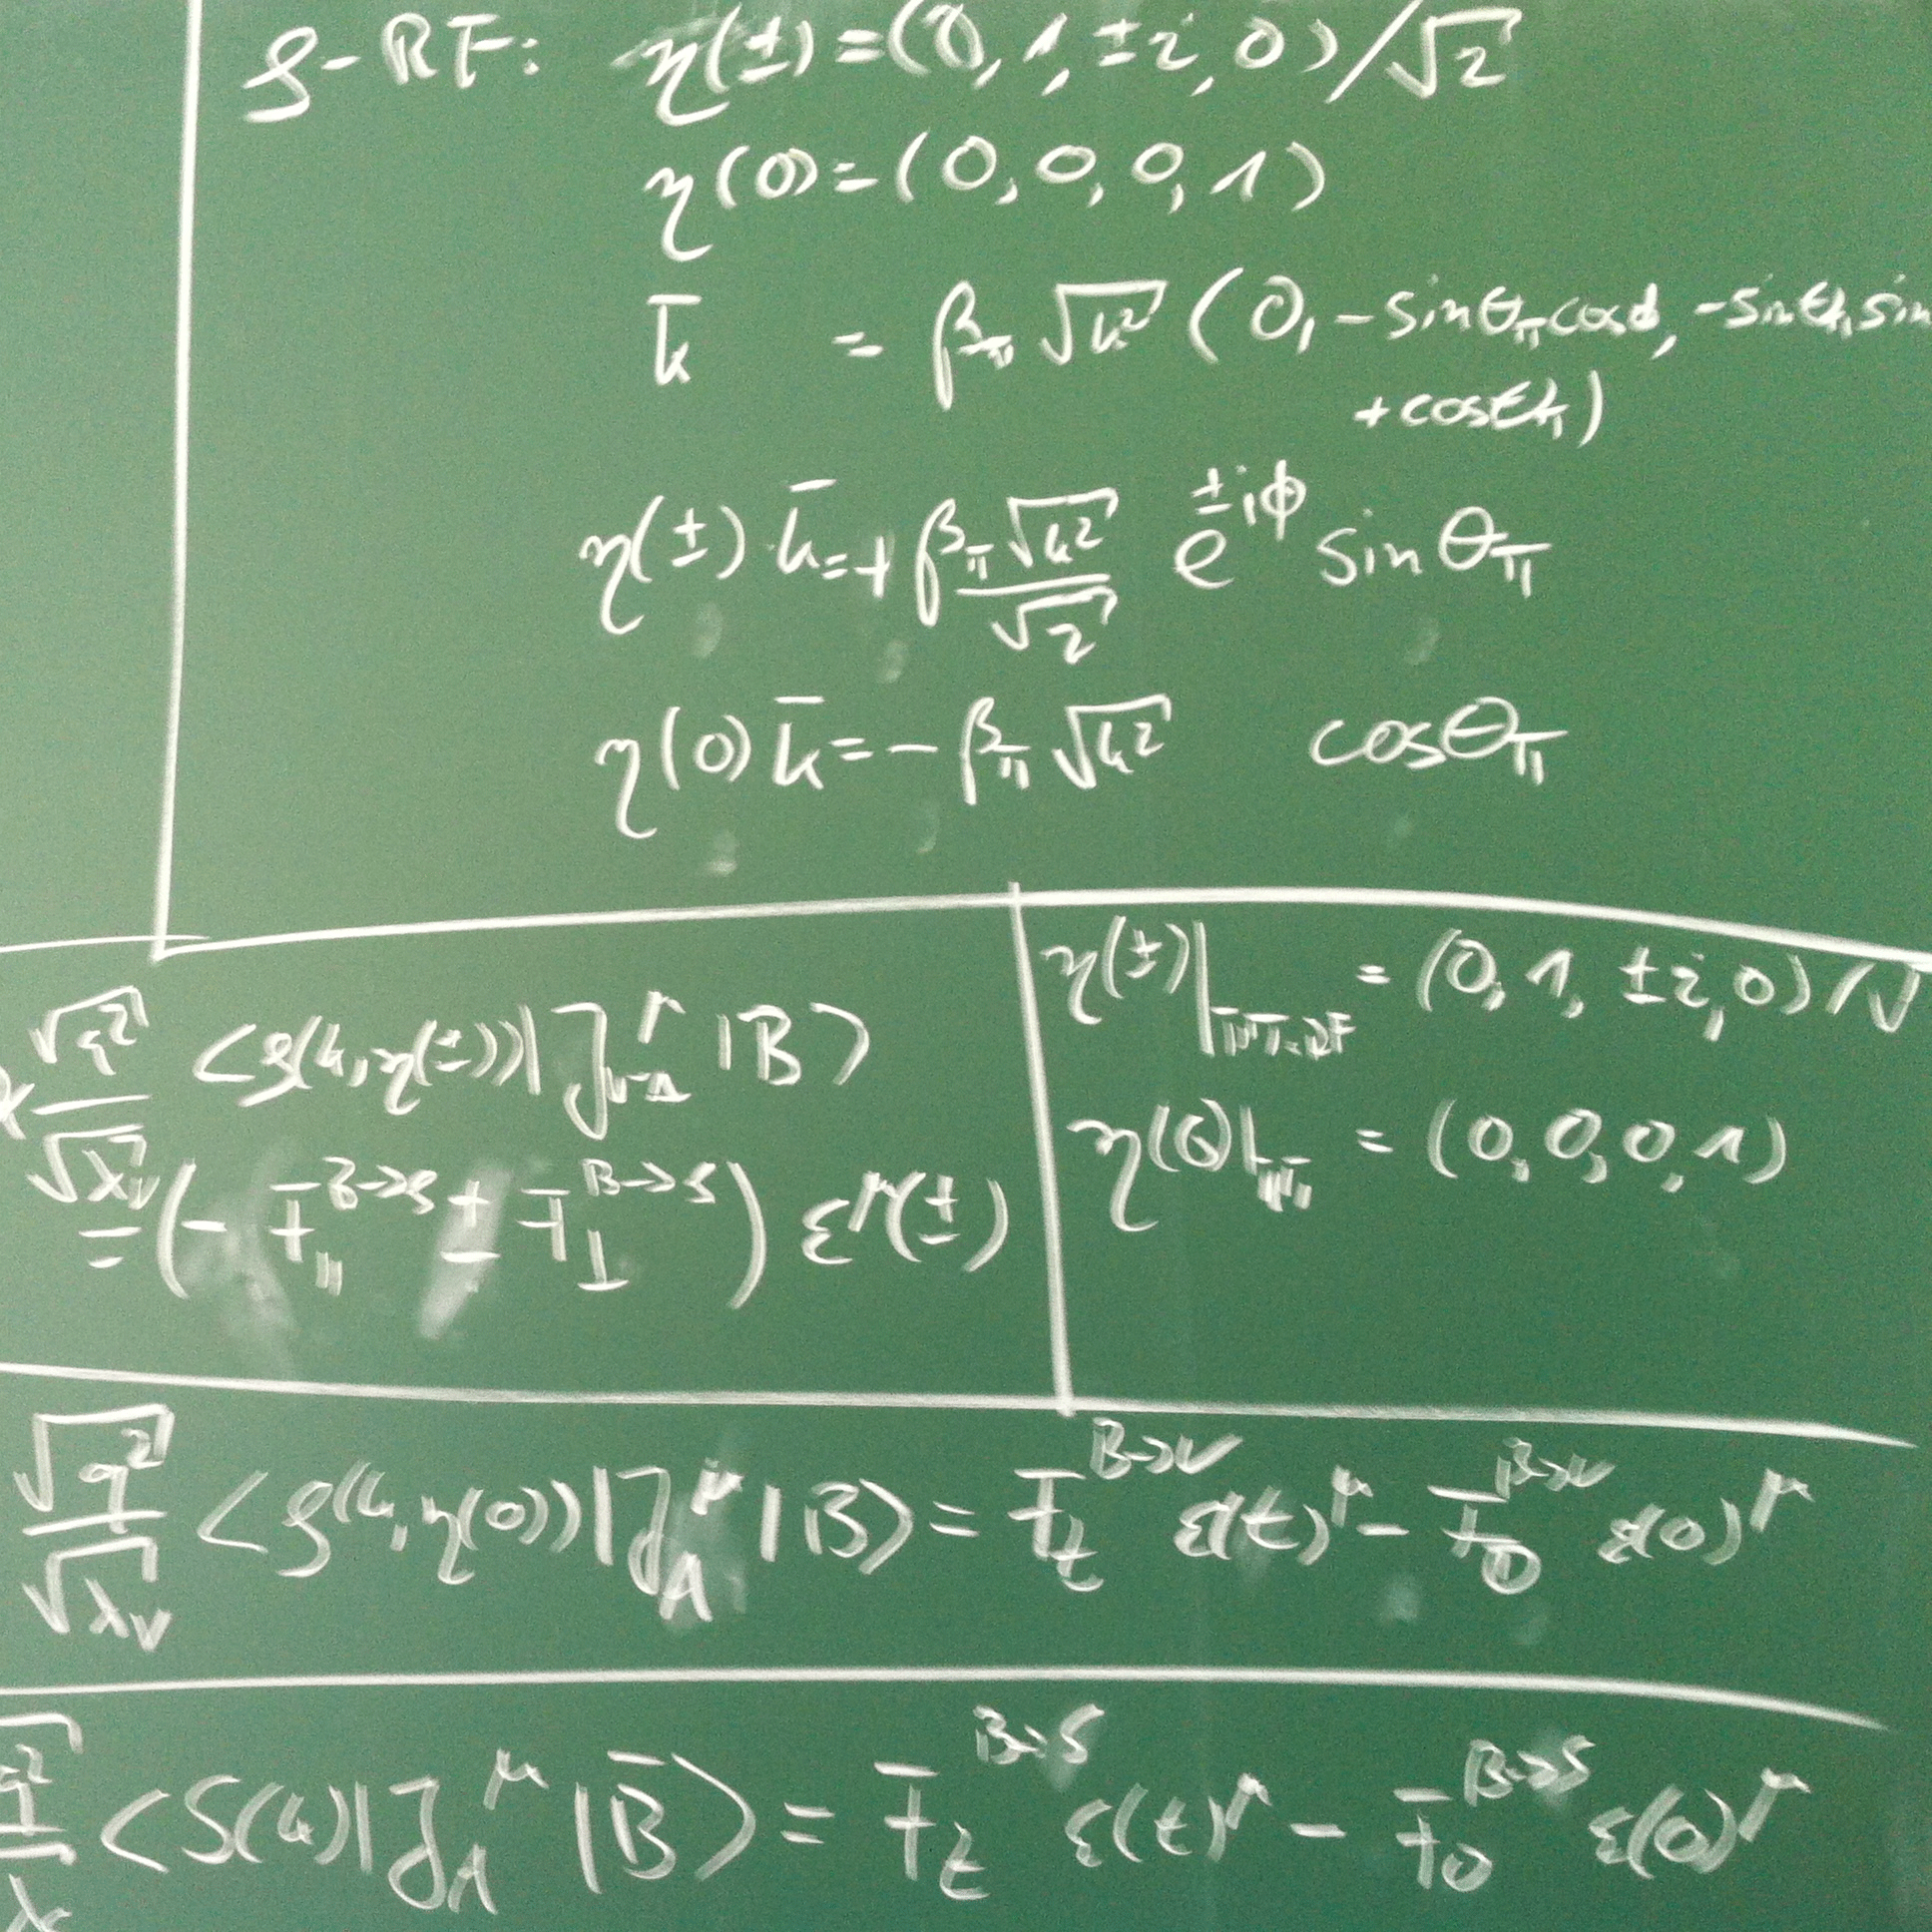 ρ-RF: η(±)=(0,1,±i,0)/√2
η(0)=(0,0,0,1)
k̄ = β_π √k² (0,-sinθ_π cosϕ, -sinθ_π sin
+cosθ_π)
η(±)·k̄=+ β_π √k² / √2 e^{±iϕ} sinθ_π
η(0) k̄=- β_π √k² cosθ_π
√q² / √λ_V <ρ(k,η(±))| J^μ_{V-A} |B>
=(- F_∥^{B→ρ} ± F_⊥^{B→ρ}) ε^μ(±)
η(±)|_{ππ-RF} = (0,1,±i,0)/√
η(0)|_{ππ} = (0,0,0,1)
√q² / √λ_V <ρ(k,η(0))|J_A^μ|B> = F_t^{B→V} ε(t)^μ - F_0^{B→V} ε(0)^μ
<S(k)|J_A^μ|B̄> = F_t^{B→S} ε(t)^μ - F_0^{B→S} ε(0)^μ